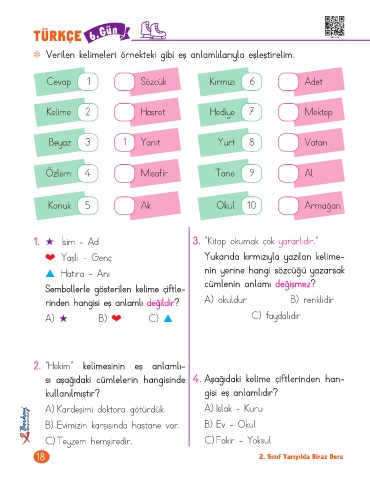 TÜRKÇE 6. Gün
✻ Verilen kelimeleri örnekteki gibi eş anlamlılarıyla eşleştirelim.
Cevap 1 Sözcük
Kelime 2 Hasret
Beyaz 3 1 Yanıt
Özlem 4 Misafir
Konuk 5 Ak
Kırmızı 6 Adet
Hediye 7 Mektep
Yurt 8 Vatan
Tane 9 Al
Okul 10 Armağan
1. ★ İsim - Ad
❤ Yaşlı - Genç
▲ Hatıra - Anı
Sembollerle gösterilen kelime çiftle-
rinden hangisi eş anlamlı değildir?
A) ★ B) ❤ C) ▲
2. "Hekim" kelimesinin eş anlamlı-
sı aşağıdaki cümlelerin hangisinde
kullanılmıştır?
A) Kardeşimi doktora götürdük.
B) Evimizin karşısında hastane var.
C) Teyzem hemşiredir.
3. "Kitap okumak çok yararlıdır."
Yukarıda kırmızıyla yazılan kelime-
nin yerine hangi sözcüğü yazarsak
cümlenin anlamı değişmez?
A) okuldur B) renklidir
C) faydalıdır
4. Aşağıdaki kelime çiftlerinden han-
gisi eş anlamlıdır?
A) Islak - Kuru
B) Ev - Okul
C) Fakir - Yoksul
18
2. Sınıf Tarıyılda Biraz Ders